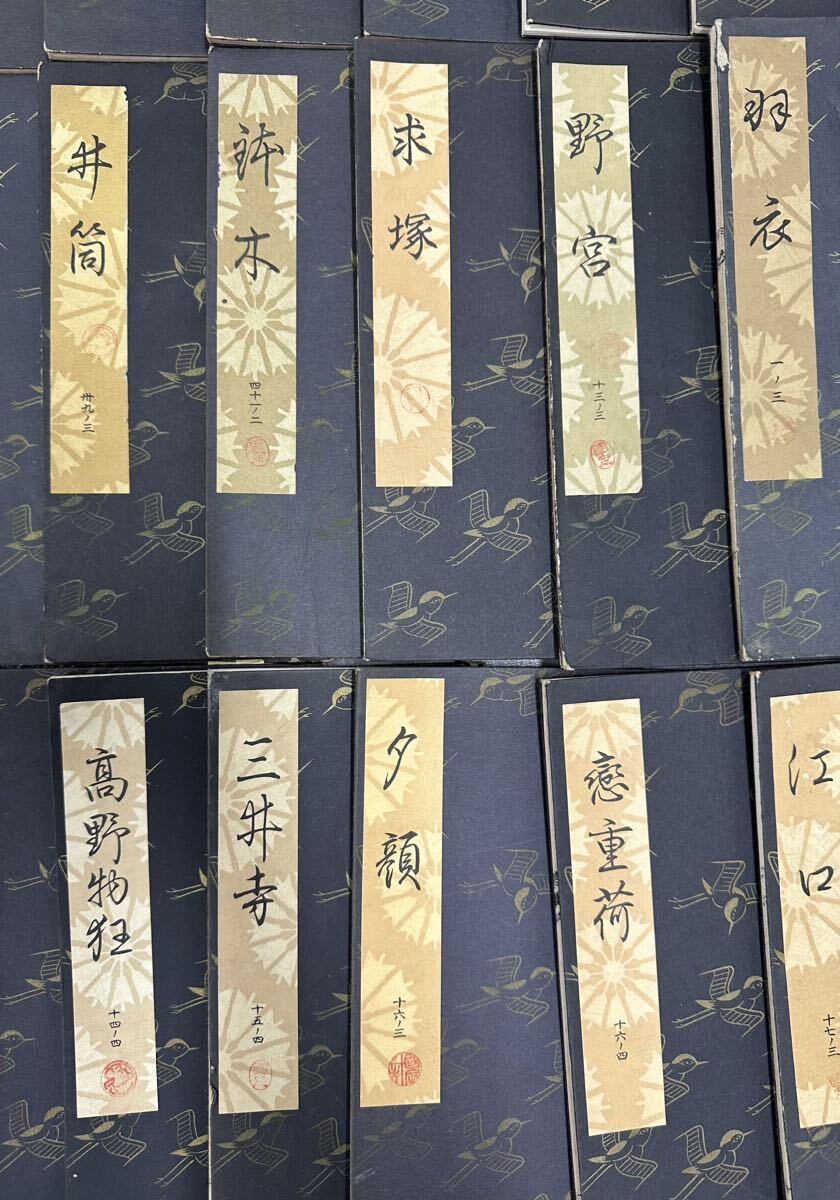 羽衣
一ノ三
野宮
十三ノ三
求塚
鉢木
四十一ノ二
井筒
卅九ノ三
江口
十七ノ三
戀重荷
十六ノ四
夕顔
十六ノ三
三井寺
十五ノ四
高野物狂
十四ノ四